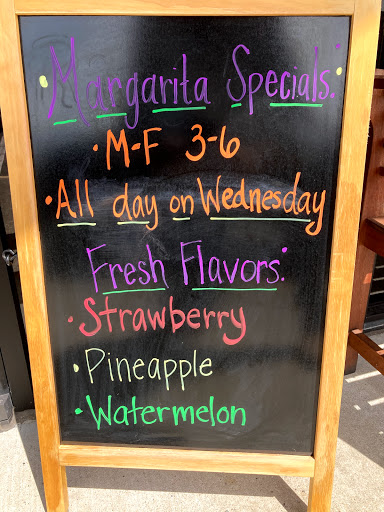 Margarita Specials:
• M-F 3-6
• All day on Wednesday
Fresh Flavors:
• Strawberry
• Pineapple
• Watermelon